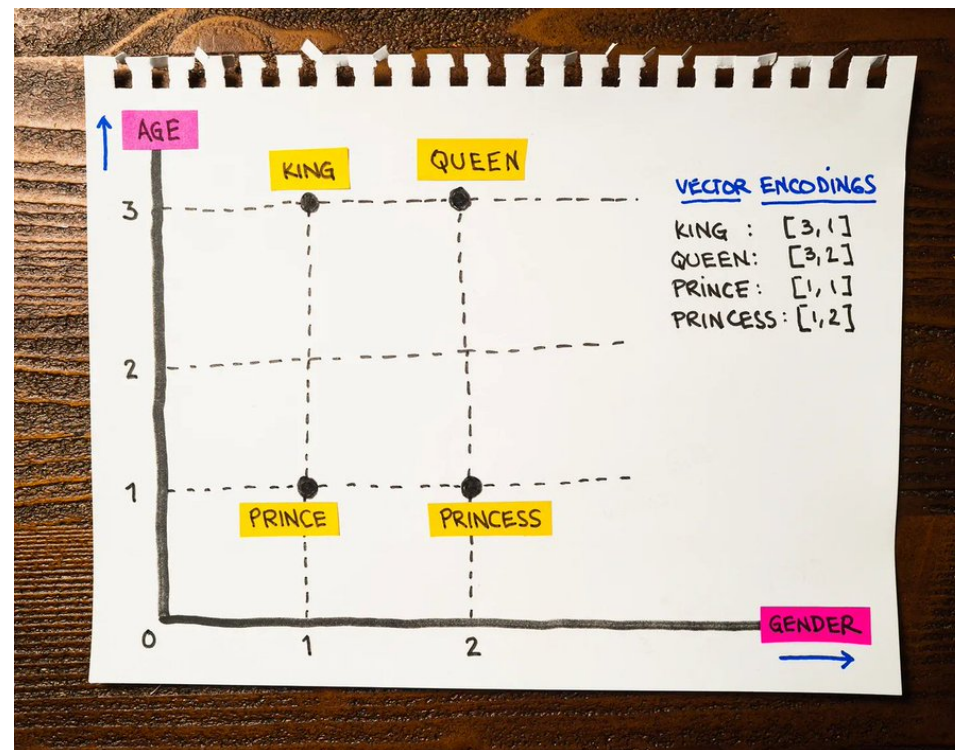 AGE
KING
QUEEN
3
2
1
PRINCE
PRINCESS
0
1
2
GENDER
VECTOR ENCODINGS
KING : [3,1]
QUEEN: [3,2]
PRINCE: [1,1]
PRINCESS: [1,2]